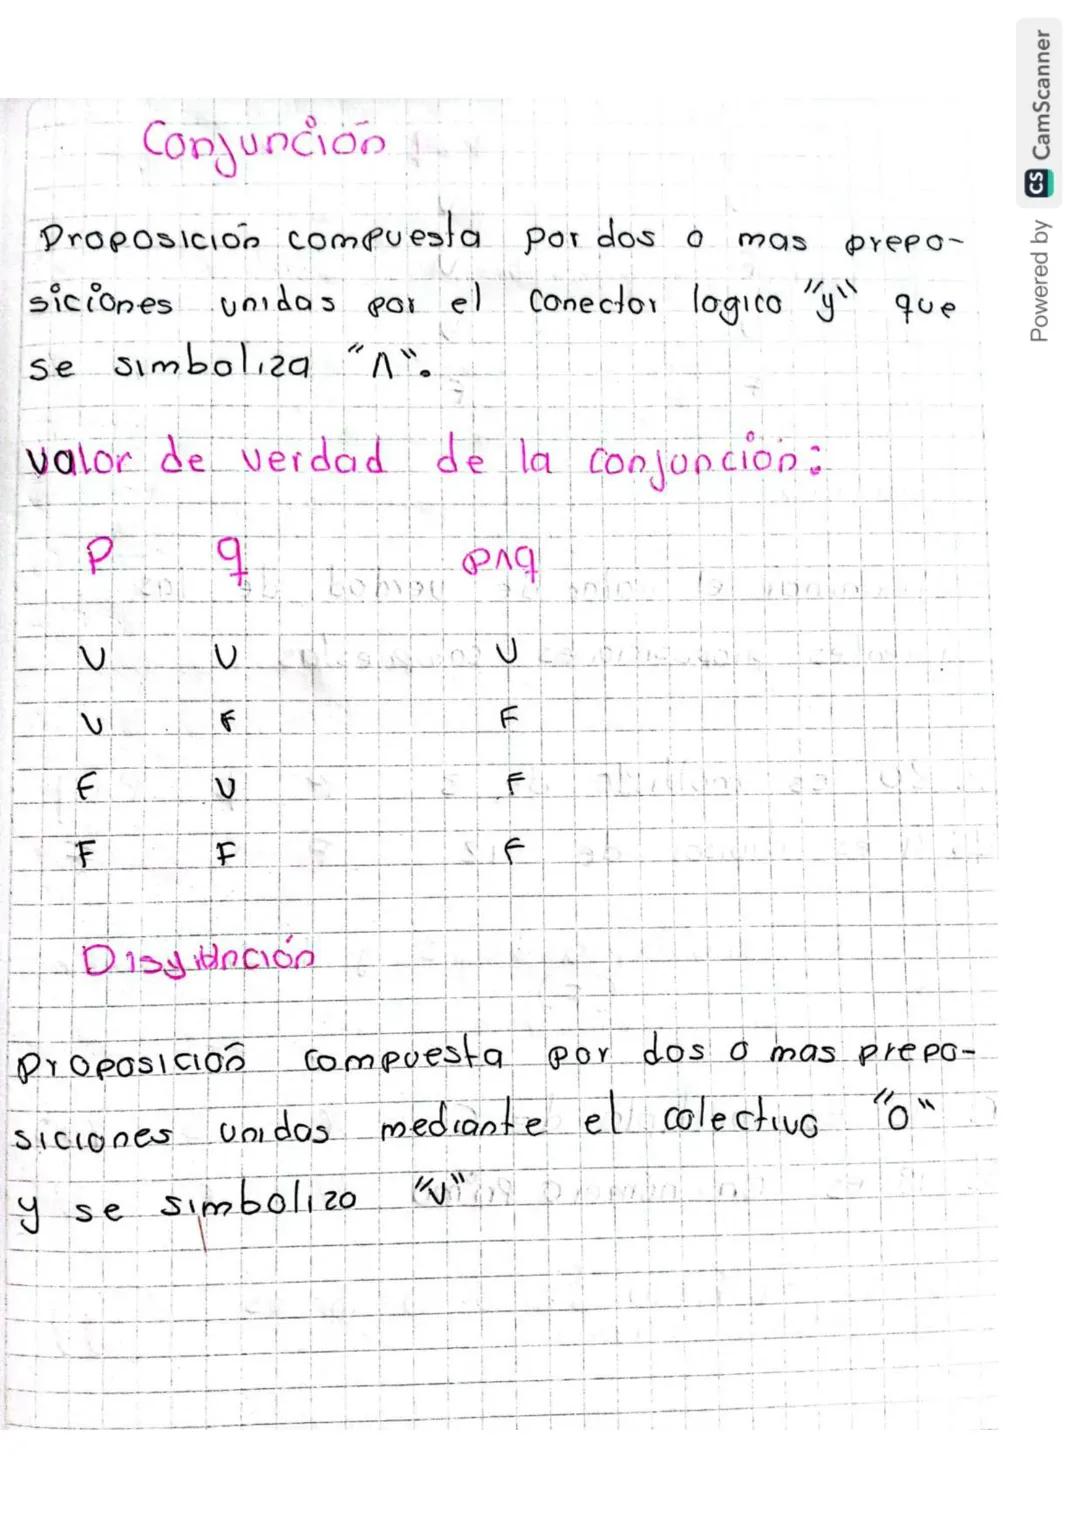 Conjunción
Proposición compuesta por dos o mas prepo-
siciones unidas por el conector logico "y" que
se simboliza "Λ".
valor de verdad de la conjunción:
P q pΛq
V V V
V F F
F V F
F F F
Disyunción
Proposición compuesta por dos o mas prepo-
siciones unidas mediante el colectivo "o"
y se simbolizo "V"
Powered by CS CamScanner